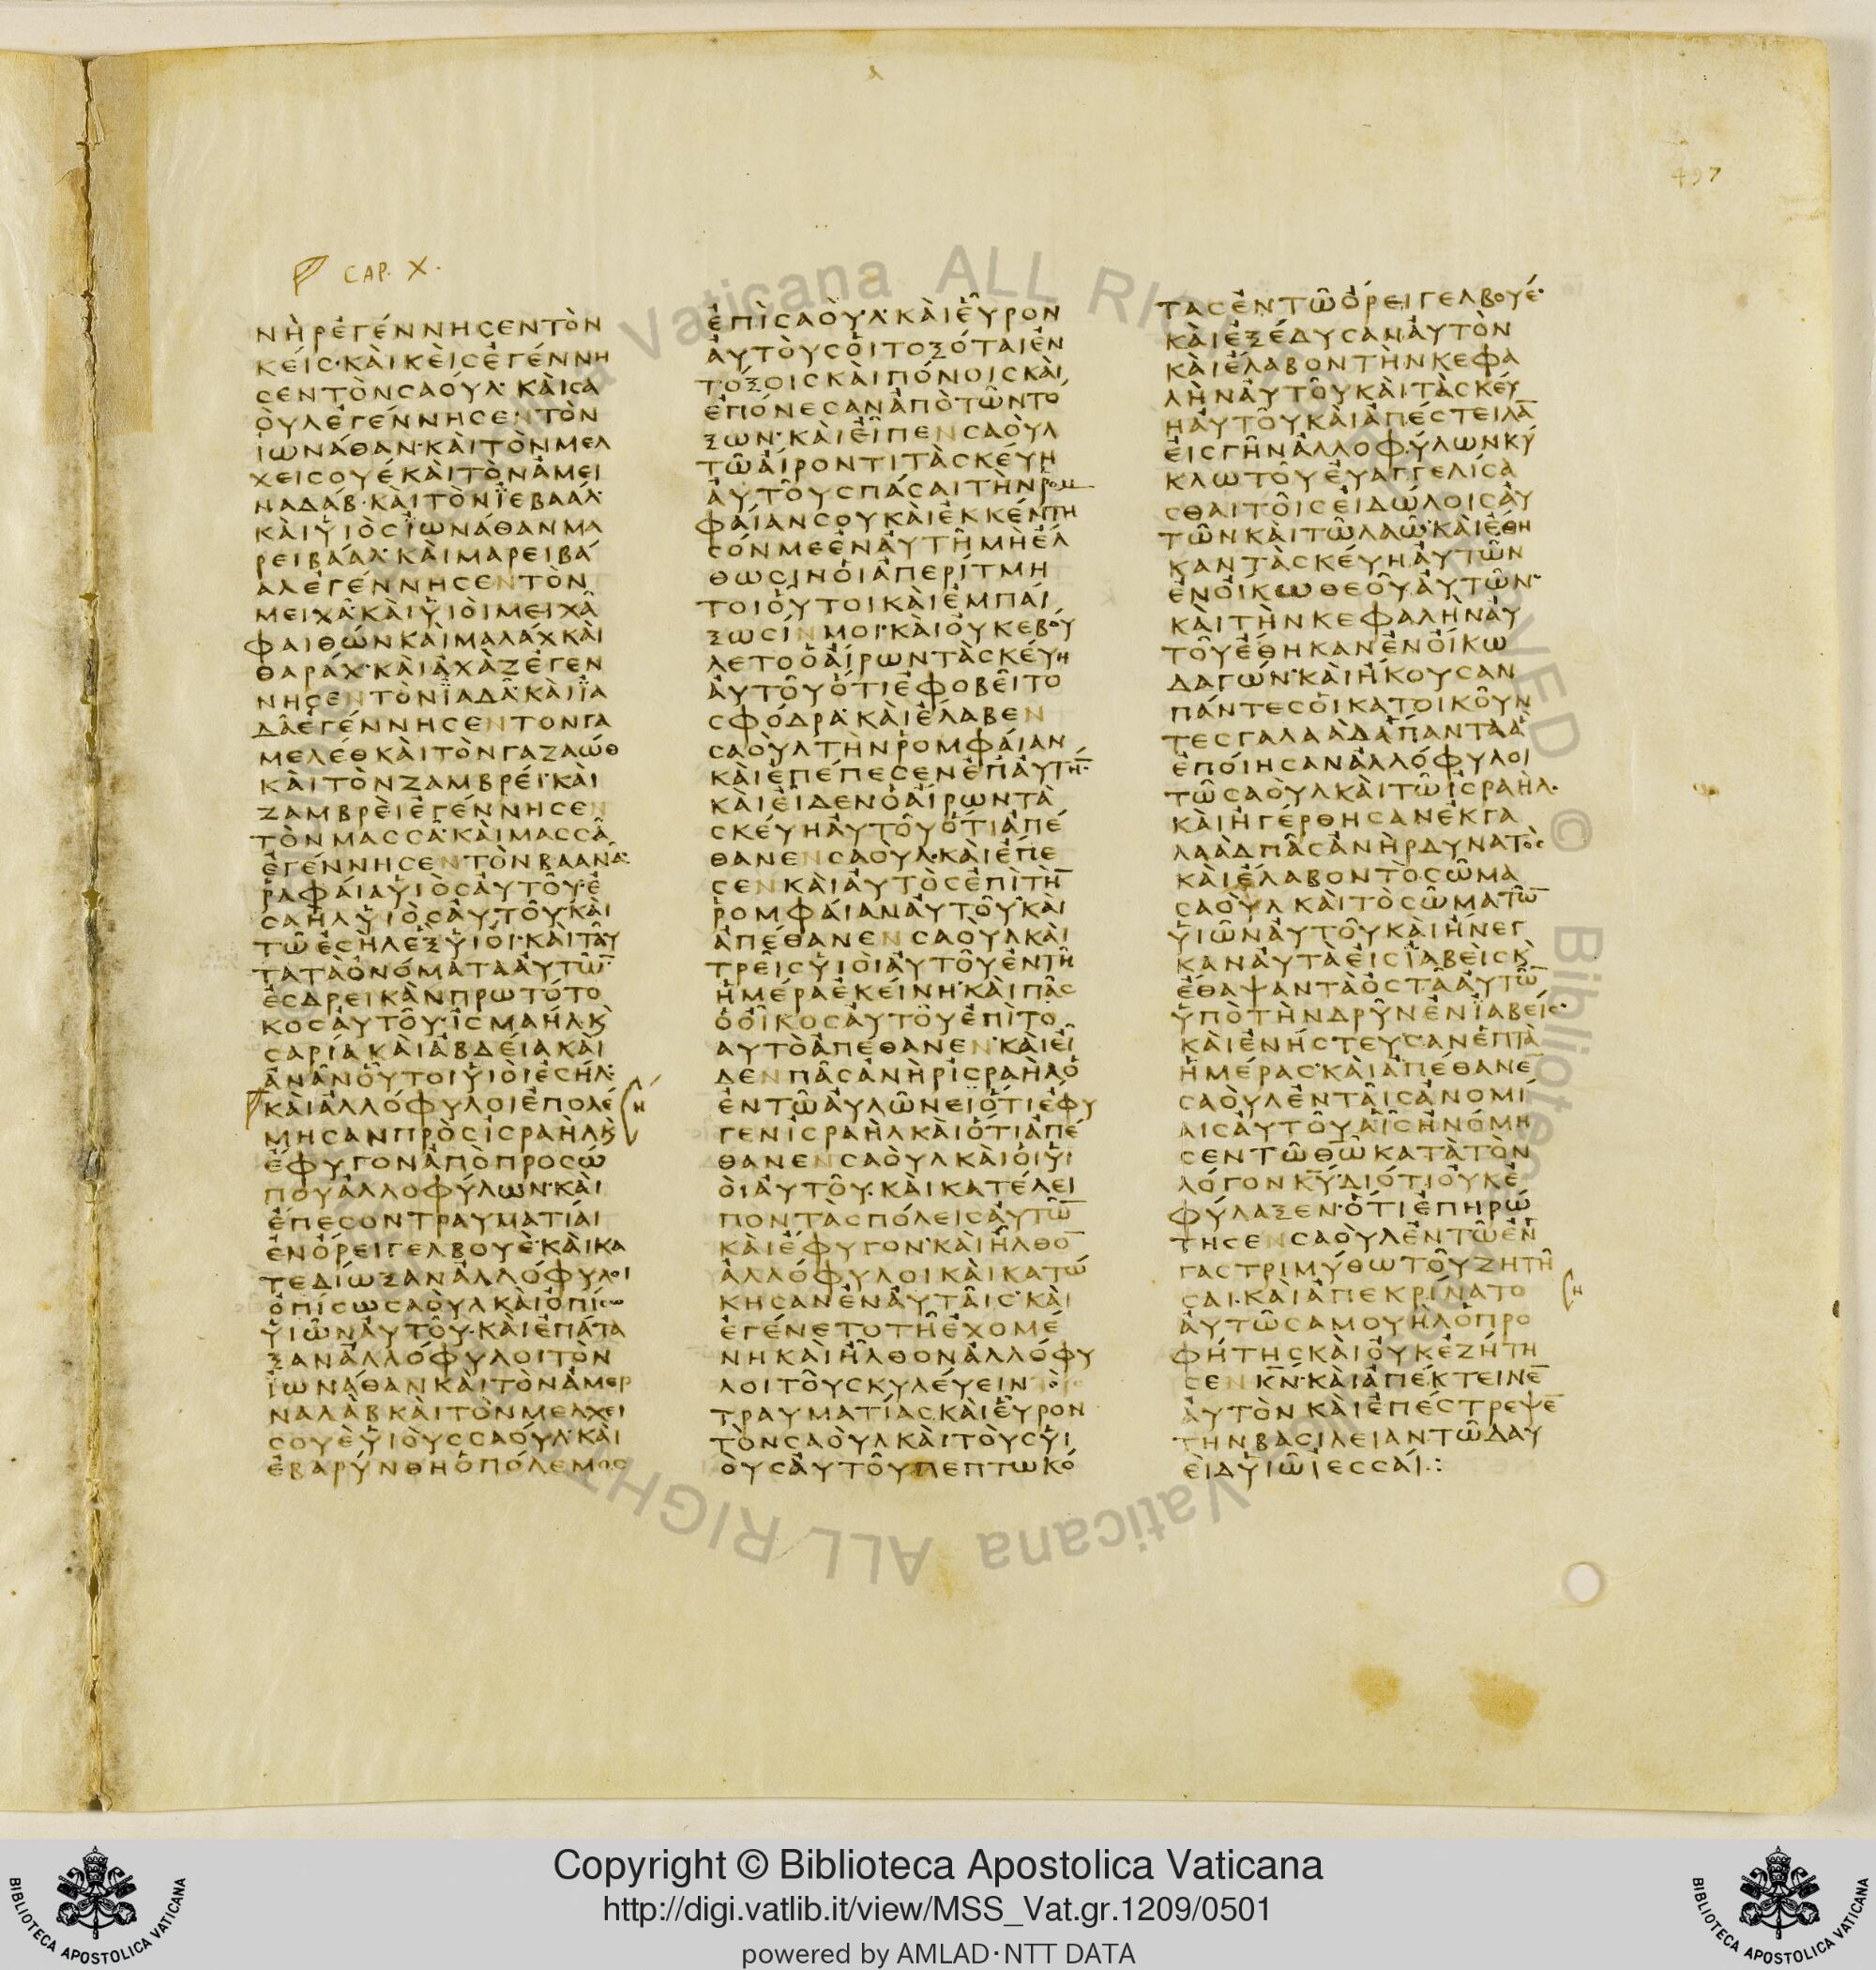 497
CAP. X.
ΝΗΡΕΓΕΝΝΗΣΕΝΤΟΝ
ΚΕΙΣ·ΚΑΙΚΕΙΣΕΓΕΝΝΗ
ΣΕΝΤΟΝΣΑΟΥΛ·ΚΑΙΣΑ
ΟΥΛΕΓΕΝΝΗΣΕΝΤΟΝ
ΙΩΝΑΘΑΝ·ΚΑΙΤΟΝΜΕΛ
ΧΕΙΣΟΥΕΚΑΙΤΟΝΑΜΕΙ
ΝΑΔΑΒ·ΚΑΙΤΟΝΪΕΒΑΑΛ·
ΚΑΙΥΙΟΣΪΩΝΑΘΑΝΜΑ
ΡΕΙΒΑΑΛ·ΚΑΙΜΑΡΕΙΒΑ
ΑΛΕΓΕΝΝΗΣΕΝΤΟΝ
ΜΕΙΧΑ·ΚΑΙΥΙΟΙΜΕΙΧΑ
ΦΑΙΘΩΝΚΑΙΜΑΛΑΧΚΑΙ
ΘΑΡΑΧ·ΚΑΙΑΧΑΖΕΓΕΝ
ΝΗΣΕΝΤΟΝΪΑΔΑ·ΚΑΙΪΑ
ΔΑΕΓΕΝΝΗΣΕΝΤΟΝΓΑ
ΜΕΛΕΘΚΑΙΤΟΝΓΑΖΑΩΘ
ΚΑΙΤΟΝΖΑΜΒΡΕΙ·ΚΑΙ
ΖΑΜΒΡΕΙΕΓΕΝΝΗΣΕΝ
ΤΟΝΜΑΣΣΑ·ΚΑΙΜΑΣΣΑ
ΕΓΕΝΝΗΣΕΝΤΟΝΒΑΑΝΑ·
ΡΑΦΑΙΑΥΙΟΣΑΥΤΟΥ·Ε
ΣΑΗΛΥΙΟΣΑΥΤΟΥ·ΚΑΙ
ΤΩΕΣΗΛΕΞΥΙΟΙ·ΚΑΙΤΑΥ
ΤΑΤΑΟΝΟΜΑΤΑΑΥΤΩ̅·
ΕΣΔΡΕΙΚΑΝΠΡΩΤΟΤΟ
ΚΟΣΑΥΤΟΥ·ΙΣΜΑΗΛϏ
ΣΑΡΙΑΚΑΙΑΒΔΕΙΑΚΑΙ
ΑΝΑΝΟΥΤΟΙΥΙΟΙΕΣΗΛ·
ΚΑΙΑΛΛΟΦΥΛΟΙΕΠΟΛΕ
ΜΗΣΑΝΠΡΟΣΙΣΡΑΗΛϏ
ΕΦΥΓΟΝΑΠΟΠΡΟΣΩ
ΠΟΥΑΛΛΟΦΥΛΩΝ·ΚΑΙ
ΕΠΕΣΟΝΤΡΑΥΜΑΤΙΑΙ
ΕΝΟΡΕΙΓΕΛΒΟΥΕ·ΚΑΙΚΑ
ΤΕΔΙΩΞΑΝΑΛΛΟΦΥΛΟΙ
ΟΠΙΣΩΣΑΟΥΛΚΑΙΟΠΙΣΩ
ΥΙΩΝΑΥΤΟΥ·ΚΑΙΕΠΑΤΑ
ΞΑΝΑΛΛΟΦΥΛΟΙΤΟΝ
ΪΩΝΑΘΑΝΚΑΙΤΟΝΑΜΕΙ
ΝΑΔΑΒΚΑΙΤΟΝΜΕΛΧΕΙ
ΣΟΥΕΥΙΟΥΣΣΑΟΥΛ·ΚΑΙ
ΕΒΑΡΥΝΘΗΟΠΟΛΕΜΟΣ
ΕΠΙΣΑΟΥΛ·ΚΑΙΕΥΡΟΝ
ΑΥΤΟΥΣΟΙΤΟΞΟΤΑΙΕΝ
ΤΟΞΟΙΣΚΑΙΠΟΝΟΙΣΚΑΙ
ΕΠΟΝΕΣΑΝΑΠΟΤΩΝΤΟ
ΞΩΝ·ΚΑΙΕΙΠΕΝΣΑΟΥΛ
ΤΩΑΙΡΟΝΤΙΤΑΣΚΕΥΗ
ΑΥΤΟΥΣΠΑΣΑΙΤΗΝΡΟΜ
ΦΑΙΑΝΣΟΥΚΑΙΕΚΚΕΝΤΗ
ΣΟΝΜΕΕΝΑΥΤΗΜΗΕΛ
ΘΩΣΙΝΟΙΑΠΕΡΙΤΜΗ
ΤΟΙΟΥΤΟΙΚΑΙΕΜΠΑΙ
ΞΩΣΙΝΜΟΙ·ΚΑΙΟΥΚΕΒΟΥ
ΛΕΤΟΟΑΙΡΩΝΤΑΣΚΕΥΗ
ΑΥΤΟΥΟΤΙΕΦΟΒΕΙΤΟ
ΣΦΟΔΡΑ·ΚΑΙΕΛΑΒΕΝ
ΣΑΟΥΛΤΗΝΡΟΜΦΑΙΑΝ
ΚΑΙΕΠΕΠΕΣΕΝΕΠΑΥΤΗ̅·
ΚΑΙΕΙΔΕΝΟΑΙΡΩΝΤΑ
ΣΚΕΥΗΑΥΤΟΥΟΤΙΑΠΕ
ΘΑΝΕΝΣΑΟΥΛ·ΚΑΙΕΠΕ
ΣΕΝΚΑΙΑΥΤΟΣΕΠΙΤΗ̅
ΡΟΜΦΑΙΑΝΑΥΤΟΥ·ΚΑΙ
ΑΠΕΘΑΝΕΝΣΑΟΥΛΚΑΙ
ΤΡΕΙΣΥΙΟΙΑΥΤΟΥΕΝΤΗ
ΗΜΕΡΑΕΚΕΙΝΗ·ΚΑΙΠΑΣ
ΟΟΙΚΟΣΑΥΤΟΥΕΠΙΤΟ
ΑΥΤΟΑΠΕΘΑΝΕΝ·ΚΑΙΕΙ
ΔΕΝΠΑΣΑΝΗΡΙΣΡΑΗΛΟ
ΕΝΤΩΑΥΛΩΝΕΙΟΤΙΕΦΥ
ΓΕΝΙΣΡΑΗΛΚΑΙΟΤΙΑΠΕ
ΘΑΝΕΝΣΑΟΥΛΚΑΙΟΙΥΙ
ΟΙΑΥΤΟΥ·ΚΑΙΚΑΤΕΛΕΙ
ΠΟΝΤΑΣΠΟΛΕΙΣΑΥΤΩ̅
ΚΑΙΕΦΥΓΟΝ·ΚΑΙΗΛΘΟ̅
ΑΛΛΟΦΥΛΟΙΚΑΙΚΑΤΩ
ΚΗΣΑΝΕΝΑΥΤΑΙΣ·ΚΑΙ
ΕΓΕΝΕΤΟΤΗΕΧΟΜΕ
ΝΗΚΑΙΗΛΘΟΝΑΛΛΟΦΥ
ΛΟΙΤΟΥΣΚΥΛΕΥΕΙΝ
ΤΡΑΥΜΑΤΙΑΣ·ΚΑΙΕΥΡΟΝ
ΤΟΝΣΑΟΥΛΚΑΙΤΟΥΣΥΙ
ΟΥΣΑΥΤΟΥΠΕΠΤΩΚΟ
ΤΑΣΕΝΤΩΟΡΕΙΓΕΛΒΟΥΕ·
ΚΑΙΕΞΕΔΥΣΑΝΑΥΤΟΝ
ΚΑΙΕΛΑΒΟΝΤΗΝΚΕΦΑ
ΛΗΝΑΥΤΟΥΚΑΙΤΑΣΚΕΥ
ΗΑΥΤΟΥΚΑΙΑΠΕΣΤΕΙΛΑ̅
ΕΙΣΓΗΝΑΛΛΟΦΥΛΩΝΚΥ
ΚΛΩΤΟΥΕΥΑΓΓΕΛΙΣΑ
ΣΘΑΙΤΟΙΣΕΙΔΩΛΟΙΣΑΥ
ΤΩΝΚΑΙΤΩΛΑΩ·ΚΑΙΕΘΗ
ΚΑΝΤΑΣΚΕΥΗΑΥΤΩΝ
ΕΝΟΙΚΩΘΕΟΥΑΥΤΩΝ·
ΚΑΙΤΗΝΚΕΦΑΛΗΝΑΥ
ΤΟΥΕΘΗΚΑΝΕΝΟΙΚΩ
ΔΑΓΩΝ·ΚΑΙΗΚΟΥΣΑΝ
ΠΑΝΤΕΣΟΙΚΑΤΟΙΚΟΥΝ
ΤΕΣΓΑΛΑΑΔΑΠΑΝΤΑΑ
ΕΠΟΙΗΣΑΝΑΛΛΟΦΥΛΟΙ
ΤΩΣΑΟΥΛΚΑΙΤΩΙΣΡΑΗΛ·
ΚΑΙΗΓΕΡΘΗΣΑΝΕΚΓΑ
ΛΑΑΔΠΑΣΑΝΗΡΔΥΝΑΤΟΣ
ΚΑΙΕΛΑΒΟΝΤΟΣΩΜΑ
ΣΑΟΥΛΚΑΙΤΟΣΩΜΑΤΩ̅
ΥΙΩΝΑΥΤΟΥΚΑΙΗΝΕΓ
ΚΑΝΑΥΤΑΕΙΣΪΑΒΕΙΣϏ
ΕΘΑΨΑΝΤΑΟΣΤΑΑΥΤΩ̅
ΥΠΟΤΗΝΔΡΥΝΕΝΪΑΒΕΙΣ·
ΚΑΙΕΝΗΣΤΕΥΣΑΝΕΠΤΑ
ΗΜΕΡΑΣ·ΚΑΙΑΠΕΘΑΝΕ̅
ΣΑΟΥΛΕΝΤΑΙΣΑΝΟΜΙ
ΑΙΣΑΥΤΟΥΑΙΣΗΝΟΜΗ
ΣΕΝΤΩΘ̅Ω̅ΚΑΤΑΤΟΝ
ΛΟΓΟΝΚ̅Υ̅·ΔΙΟΤΙΟΥΚΕ
ΦΥΛΑΞΕΝ·ΟΤΙΕΠΗΡΩ
ΤΗΣΕΝΣΑΟΥΛΕΝΤΩΕΝ
ΓΑΣΤΡΙΜΥΘΩΤΟΥΖΗΤΗ
ΣΑΙ·ΚΑΙΑΠΕΚΡΙΝΑΤΟ
ΑΥΤΩΣΑΜΟΥΗΛΟΠΡΟ
ΦΗΤΗΣΚΑΙΟΥΚΕΖΗΤΗ
ΣΕΝΚ̅Ν̅·ΚΑΙΑΠΕΚΤΕΙΝΕ̅
ΑΥΤΟΝΚΑΙΕΠΕΣΤΡΕΨΕ̅
ΤΗΝΒΑΣΙΛΕΙΑΝΤΩΔΑΥ
ΕΙΔΥΙΩΙΕΣΣΑΙ·:
Copyright © Biblioteca Apostolica Vaticana
http://digi.vatlib.it/view/MSS_Vat.gr.1209/0501
powered by AMLAD·NTT DATA
BIBLIOTECA APOSTOLICA VATICANA
BIBLIOTECA APOSTOLICA VATICANA